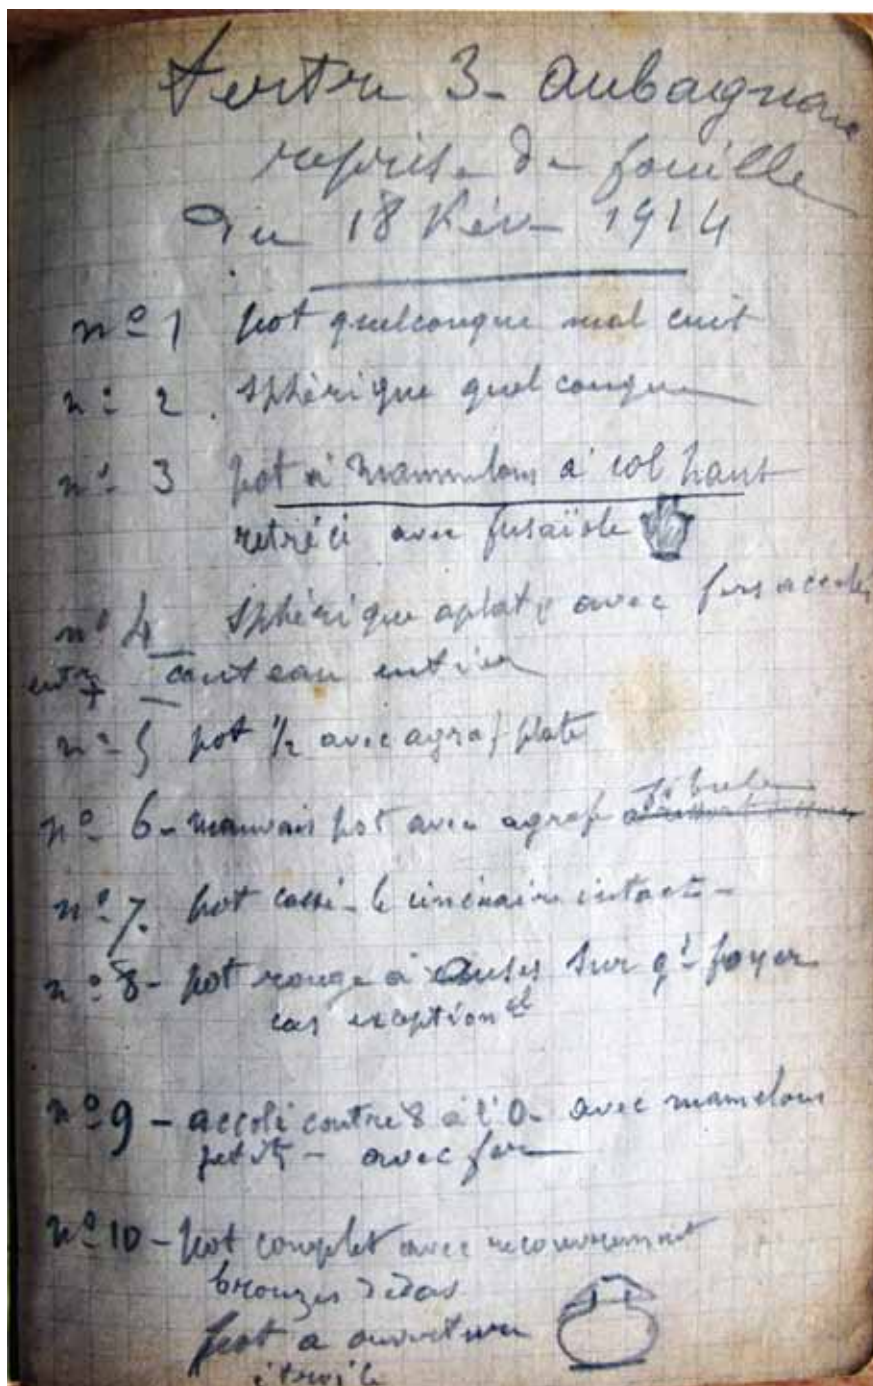 tertre 3 - Aubagnan
reprise de fouille
du 18 Fév - 1914
nº 1 pot quelconque mal cuit
nº 2. sphérique quelconque
nº 3 pot à mammelons à col haut
retréci avec fusaïole
nº 4 sphérique aplati avec fers accolés
entre couteau entier
nº 5 pot 1/2 avec agrafe plate
fibule
nº 6 - mauvais pot avec agrafe
nº 7. pot cassé - le cinéraire intact -
nº 8 - pot rouge à anses sur gd foyer
cas exceptionel
nº 9 - accolé contre 8 à l'O - avec mamelons
petits - avec fer
nº 10 - pot complet avec recouvrement
bronzes dedas
pot a ouverture
étroite